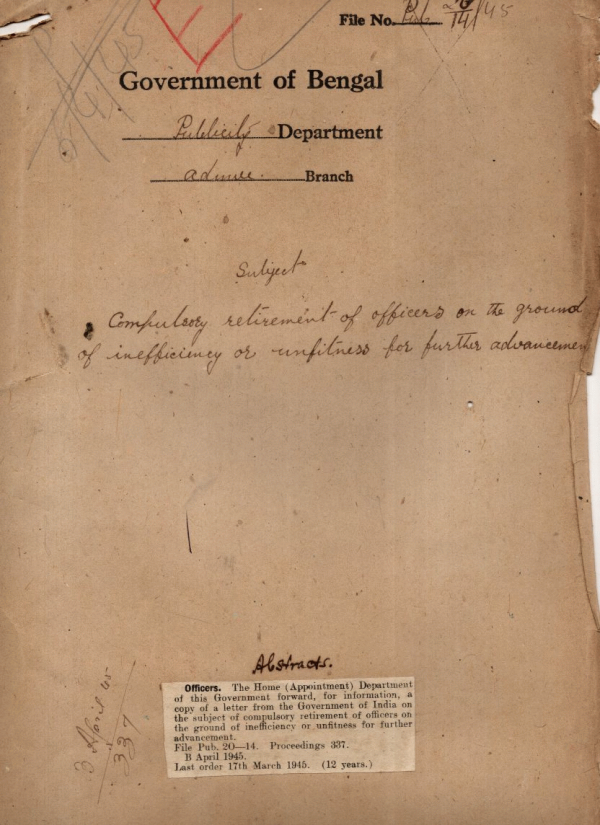 File No. Pub 20/14/45
Government of Bengal
Publicity Department
Admve. Branch
Subject
Compulsory retirement of officers on the ground
of inefficiency or unfitness for further advancemen
Abstracts.
Officers. The Home (Appointment) Department
of this Government forward, for information, a
copy of a letter from the Government of India on
the subject of compulsory retirement of officers on
the ground of inefficiency or unfitness for further
advancement.
File Pub. 20—14. Proceedings 337.
B April 1945.
Last order 17th March 1945. (12 years.)
B April 45
337